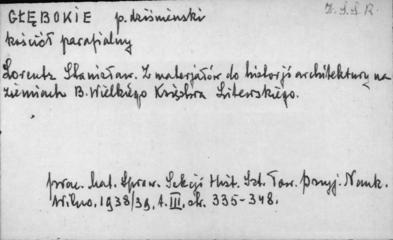 Z.S.S.R.
GŁĘBOKIE p. dziśnieński
kościół parafialny
Lorentz Stanisław. Z materjałów do historji architektury na
ziemiach B. Wielkiego Księstwa Litewskiego.
prac. Mat. Spraw. Sekcji Hist. Szt. Tow. Przyj. Nauk.
Wilno, 1938/39, t. III, str. 335-348.